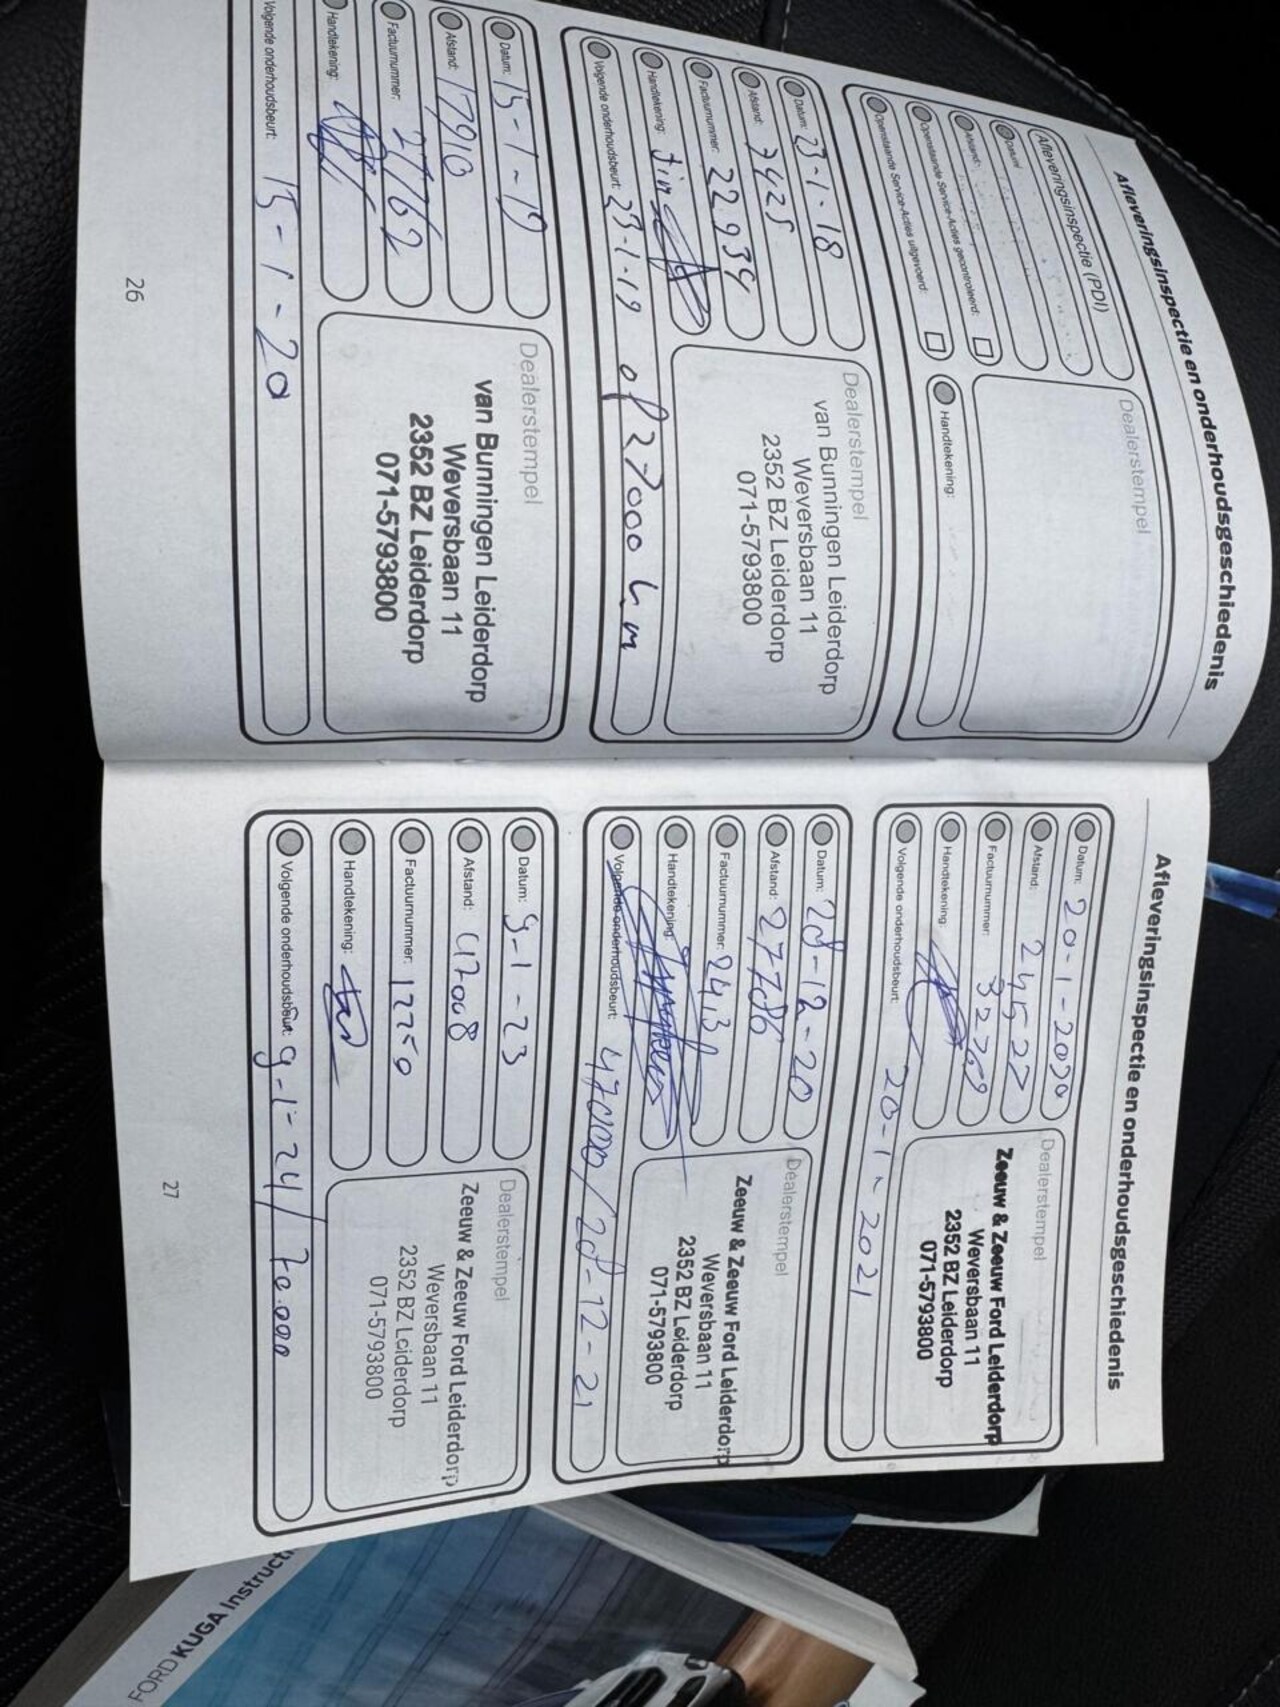 Afleveringsinspectie en onderhoudsgeschiedenis
Afleveringsinspectie (PDI)
Datum:
Afstand:
Openstaande Service-Acties gecontroleerd:
Openstaande Service-Acties uitgevoerd:
Dealerstempel
Handtekening:
Datum: 23-1-18
Afstand: 7425
Factuurnummer: 22934
Handtekening:
Volgende onderhoudsbeurt: 23-1-19 of 27000 km
Dealerstempel
van Bunningen Leiderdorp
Weversbaan 11
2352 BZ Leiderdorp
071-5793800
Datum: 15-1-19
Afstand: 17910
Factuurnummer: 27762
Handtekening:
Volgende onderhoudsbeurt: 15-1-20
Dealerstempel
van Bunningen Leiderdorp
Weversbaan 11
2352 BZ Leiderdorp
071-5793800
26
Afleveringsinspectie en onderhoudsgeschiedenis
Datum: 20-1-2020
Afstand: 24522
Factuurnummer: 32769
Handtekening:
Volgende onderhoudsbeurt: 20-1-2021
Dealerstempel
Zeeuw & Zeeuw Ford Leiderdorp
Weversbaan 11
2352 BZ Leiderdorp
071-5793800
Datum: 28-12-20
Afstand: 27786
Factuurnummer: 2413
Handtekening:
Volgende onderhoudsbeurt: 47000/28-12-21
Dealerstempel
Zeeuw & Zeeuw Ford Leiderdorp
Weversbaan 11
2352 BZ Leiderdorp
071-5793800
Datum: 9-1-23
Afstand: 47008
Factuurnummer: 12259
Handtekening:
Volgende onderhoudsbeurt: 9-1-24/70.000
Dealerstempel
Zeeuw & Zeeuw Ford Leiderdorp
Weversbaan 11
2352 BZ Leiderdorp
071-5793800
27
FORD KUGA